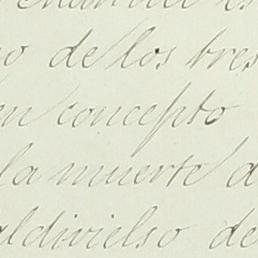 de los tres
en concepto
la muerte d
aldivielso de